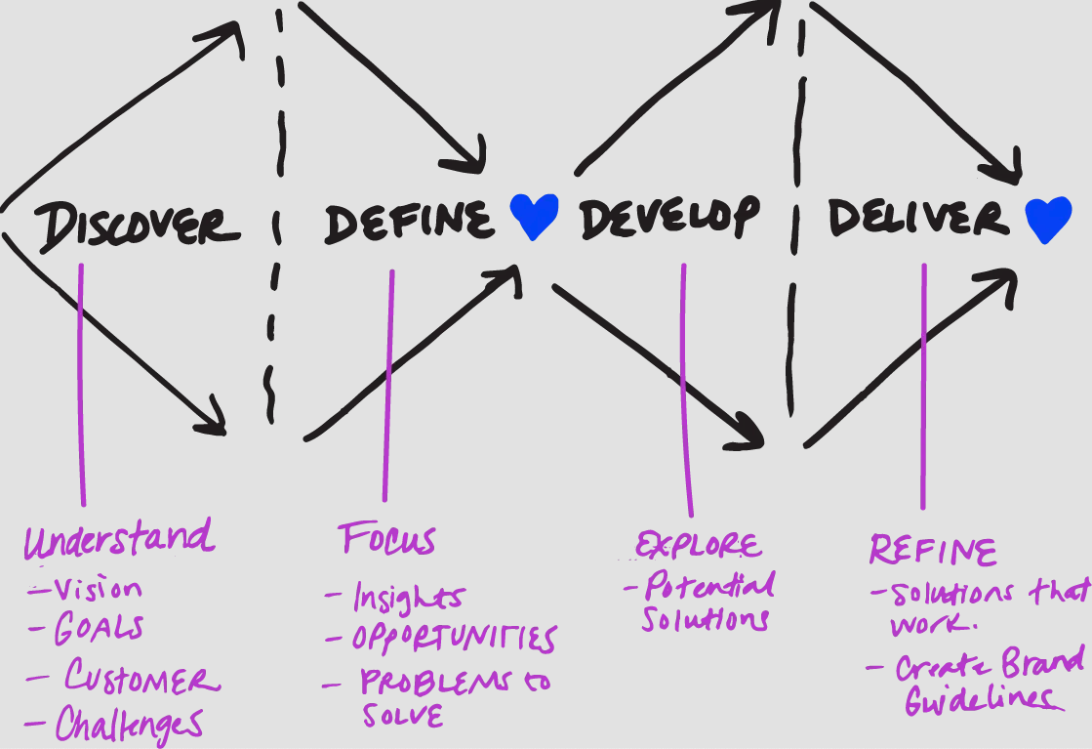 DISCOVER
DEFINE
DEVELOP
DELIVER
Understand
- Vision
- GOALS
- CUSTOMER
- Challenges
Focus
- Insights
- OPPORTUNITIES
- PROBLEMS to
SOLVE
EXPLORE
- Potential
Solutions
REFINE
- Solutions that
work.
- Create Brand
Guidelines